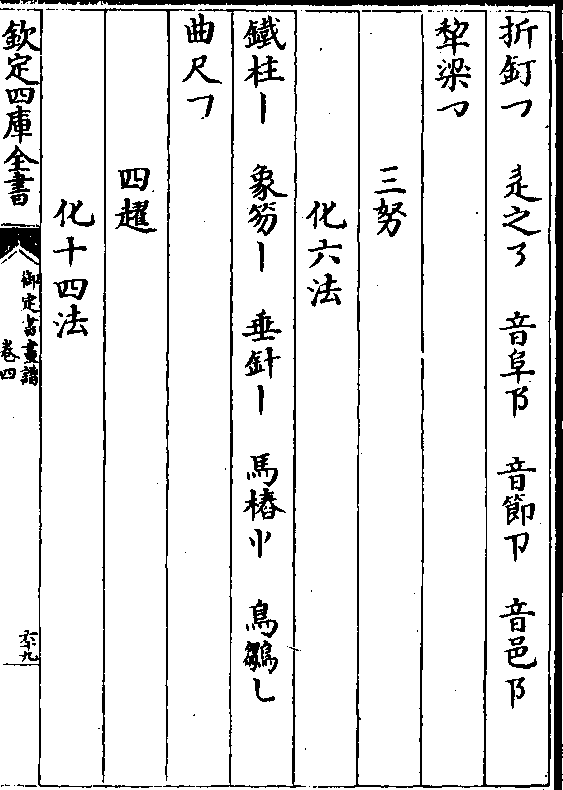 折釘㇆ 辵之㇋ 音阜阝 音節卩 音邑阝
犂梁㇆
三努
化六法
鐵柱丨 象笏丨 垂針丨 馬樁〢 鳥鷚乚
曲尺㇕
四趯
化十四法
欽定四庫全書
御定書畫譜
卷四
六十九